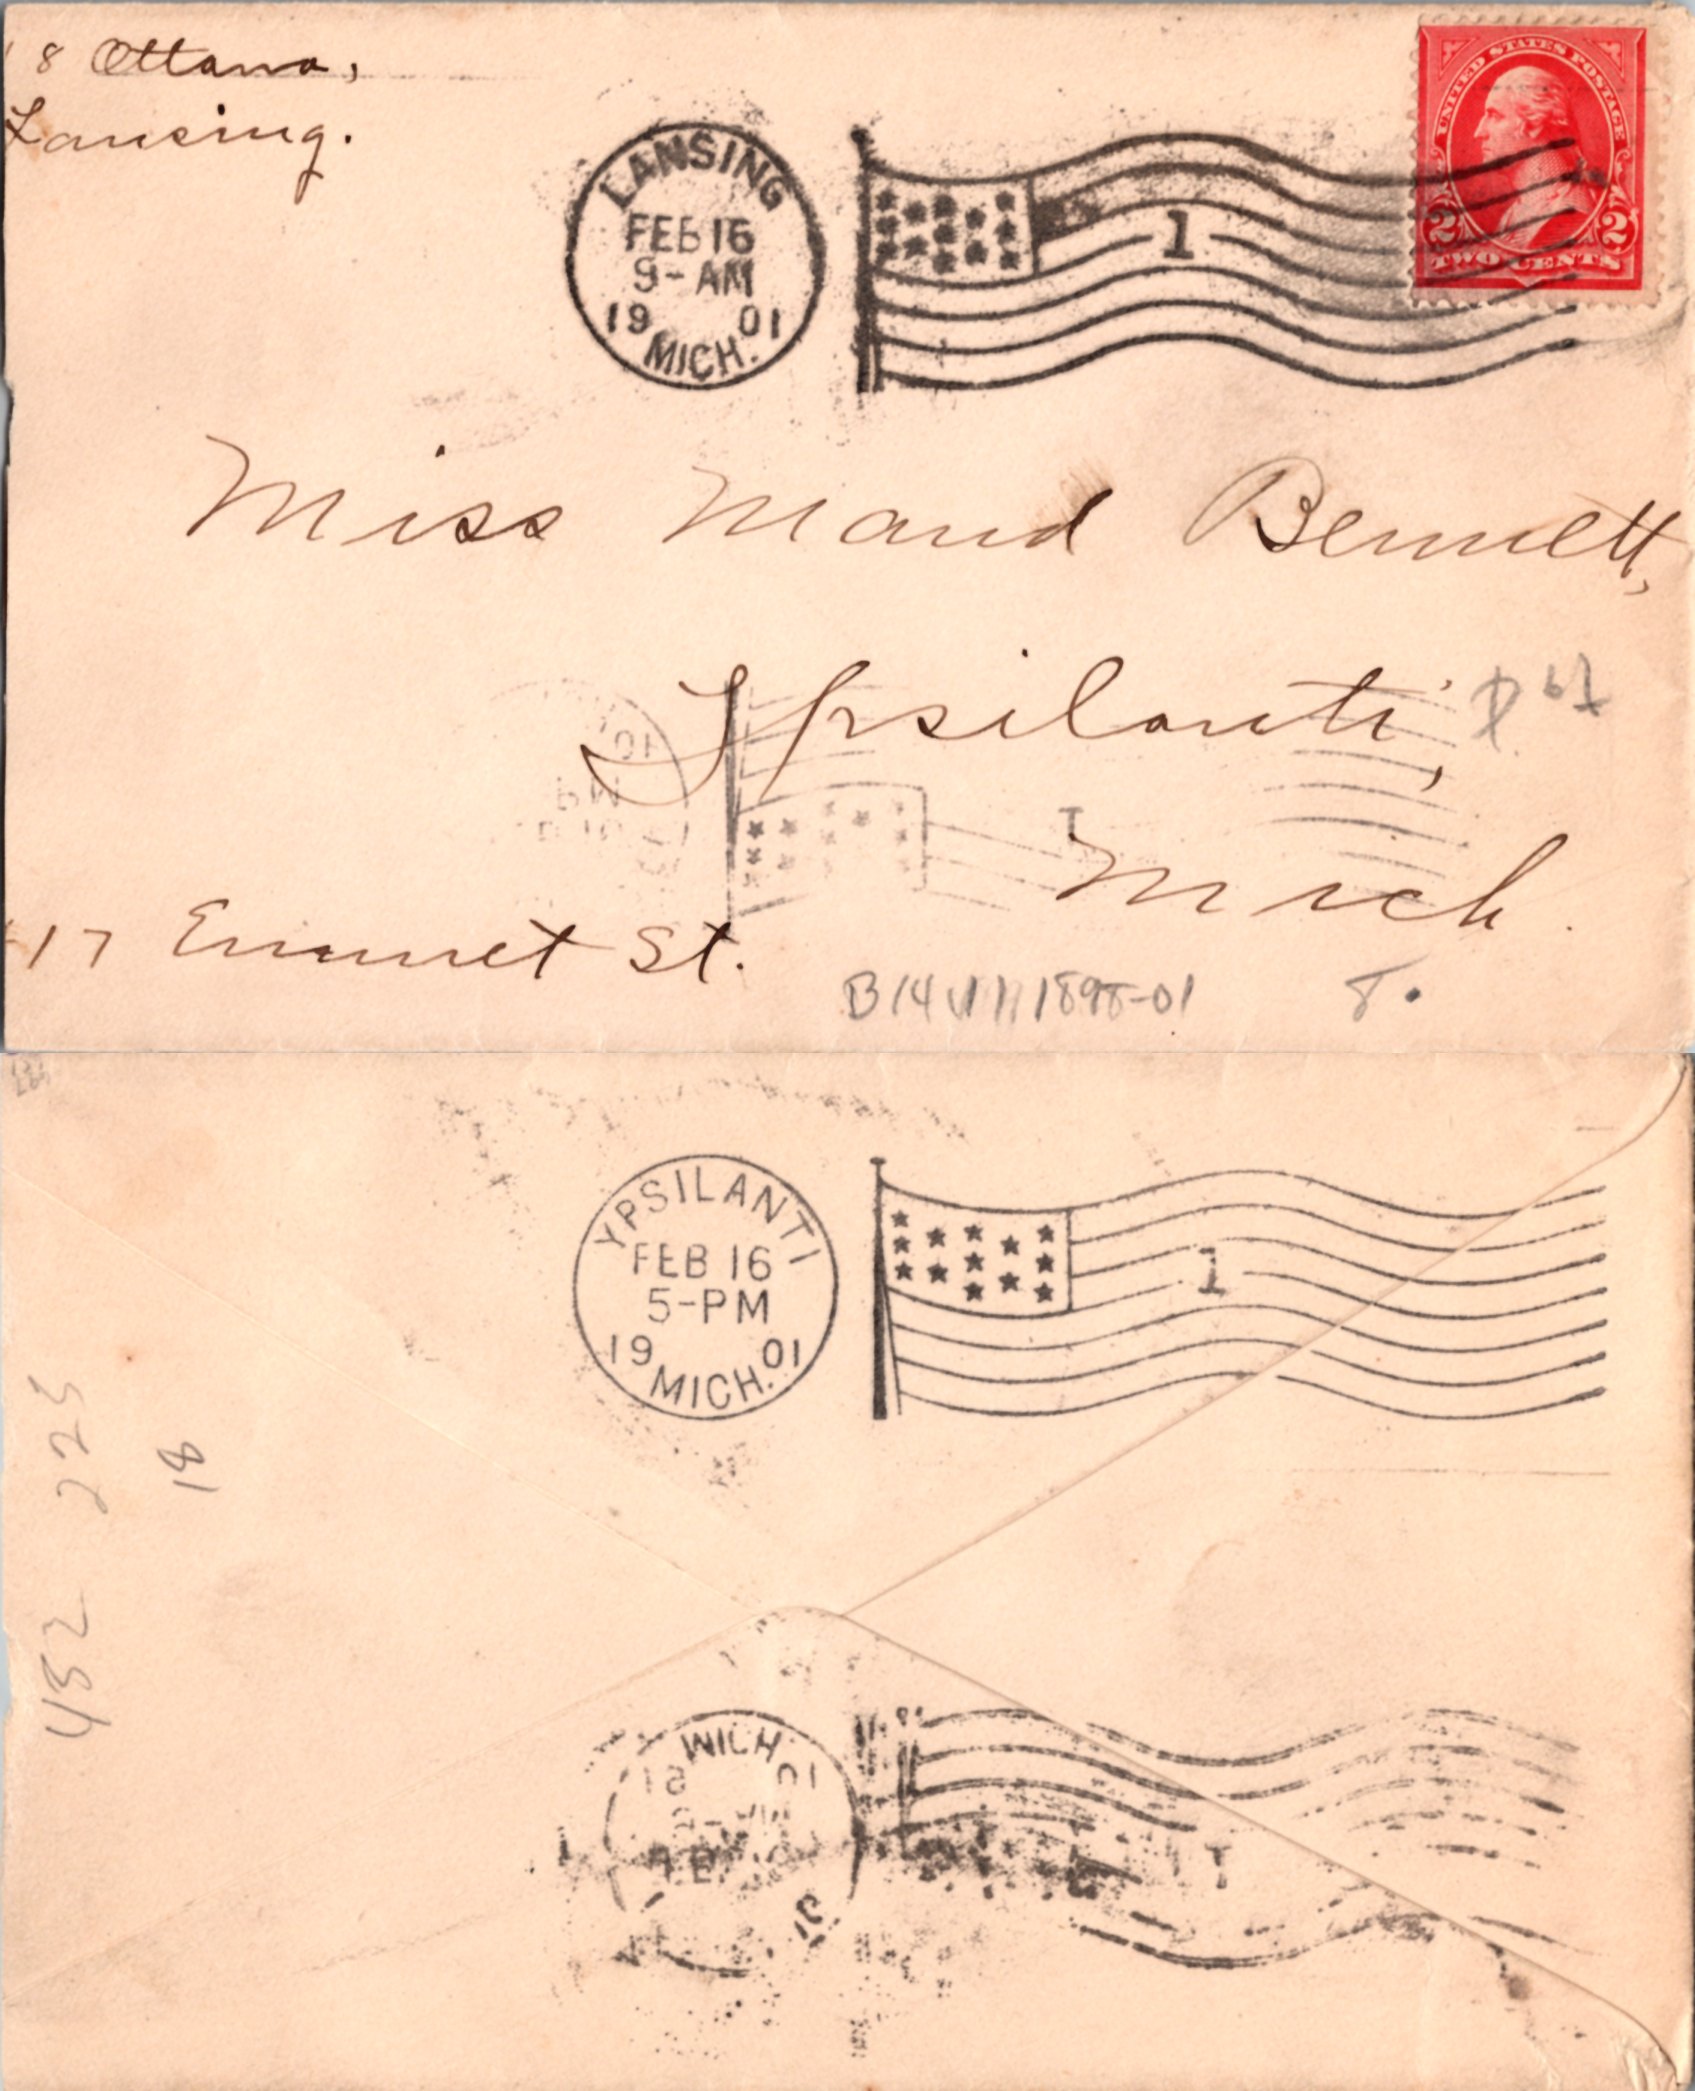 8 Ottawa,
Lansing.
LANSING
FEB 16
9-AM
19 01
MICH.
1
UNITED STATES POSTAGE
2 2
TWO CENTS
Miss Maud Bennett,
Ypsilanti,
Mich.
17 Emmet St.
B14 1898-01
8.
YPSILANTI
FEB 16
5-PM
19 01
MICH.
1
452 223
18